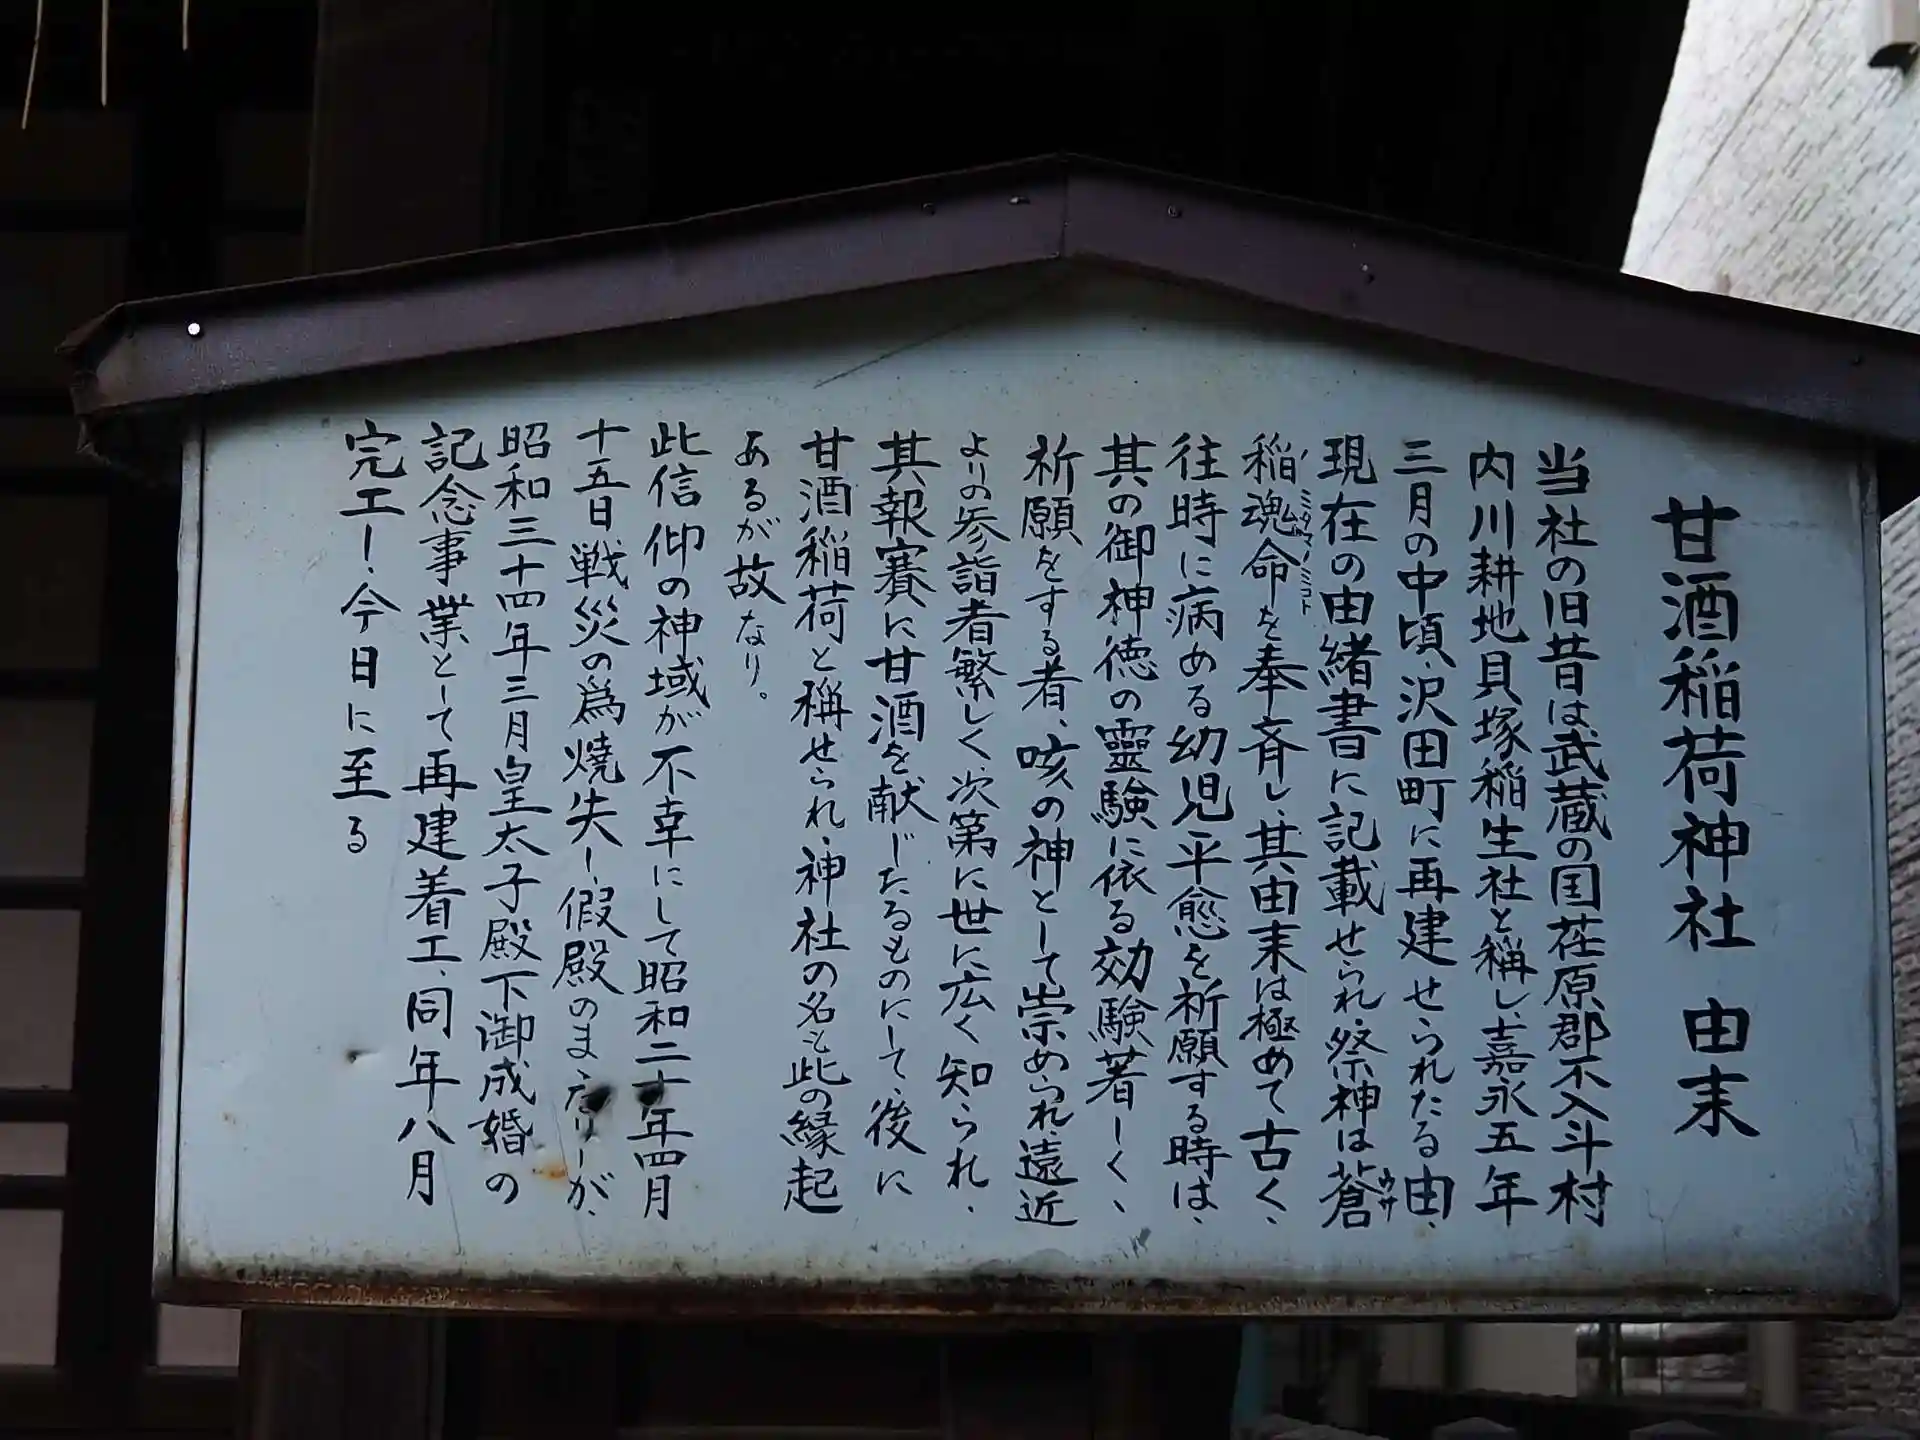 甘酒稲荷神社 由来
当社の旧昔は武蔵の国荏原郡不入斗村
内川耕地貝塚稲生社と稱し、嘉永五年
三月の中頃、沢田町に再建せられたる由、
現在の由緒書に記載せられ、祭神は蒼
稲魂命を奉斉し、其由来は極めて古く、
ウカノミタマノミコト
往時に病める幼児平愈を祈願する時は、
其の御神徳の靈験に依る効験著しく、
祈願をする者、咳の神として崇められ、遠近
よりの参詣者繁しく、次第に世に広く知られ、
其報賽に甘酒を献じたるものにして、後に
甘酒稲荷と稱せられ、神社の名も此の縁起
あるが故なり。
此信仰の神域が不幸にして昭和二十年四月
十五日戦災の為焼失し、假殿のまゝ なりしが、
昭和三十四年三月皇太子殿下御成婚の
記念事業として再建着工、同年八月
完工し、今日に至る